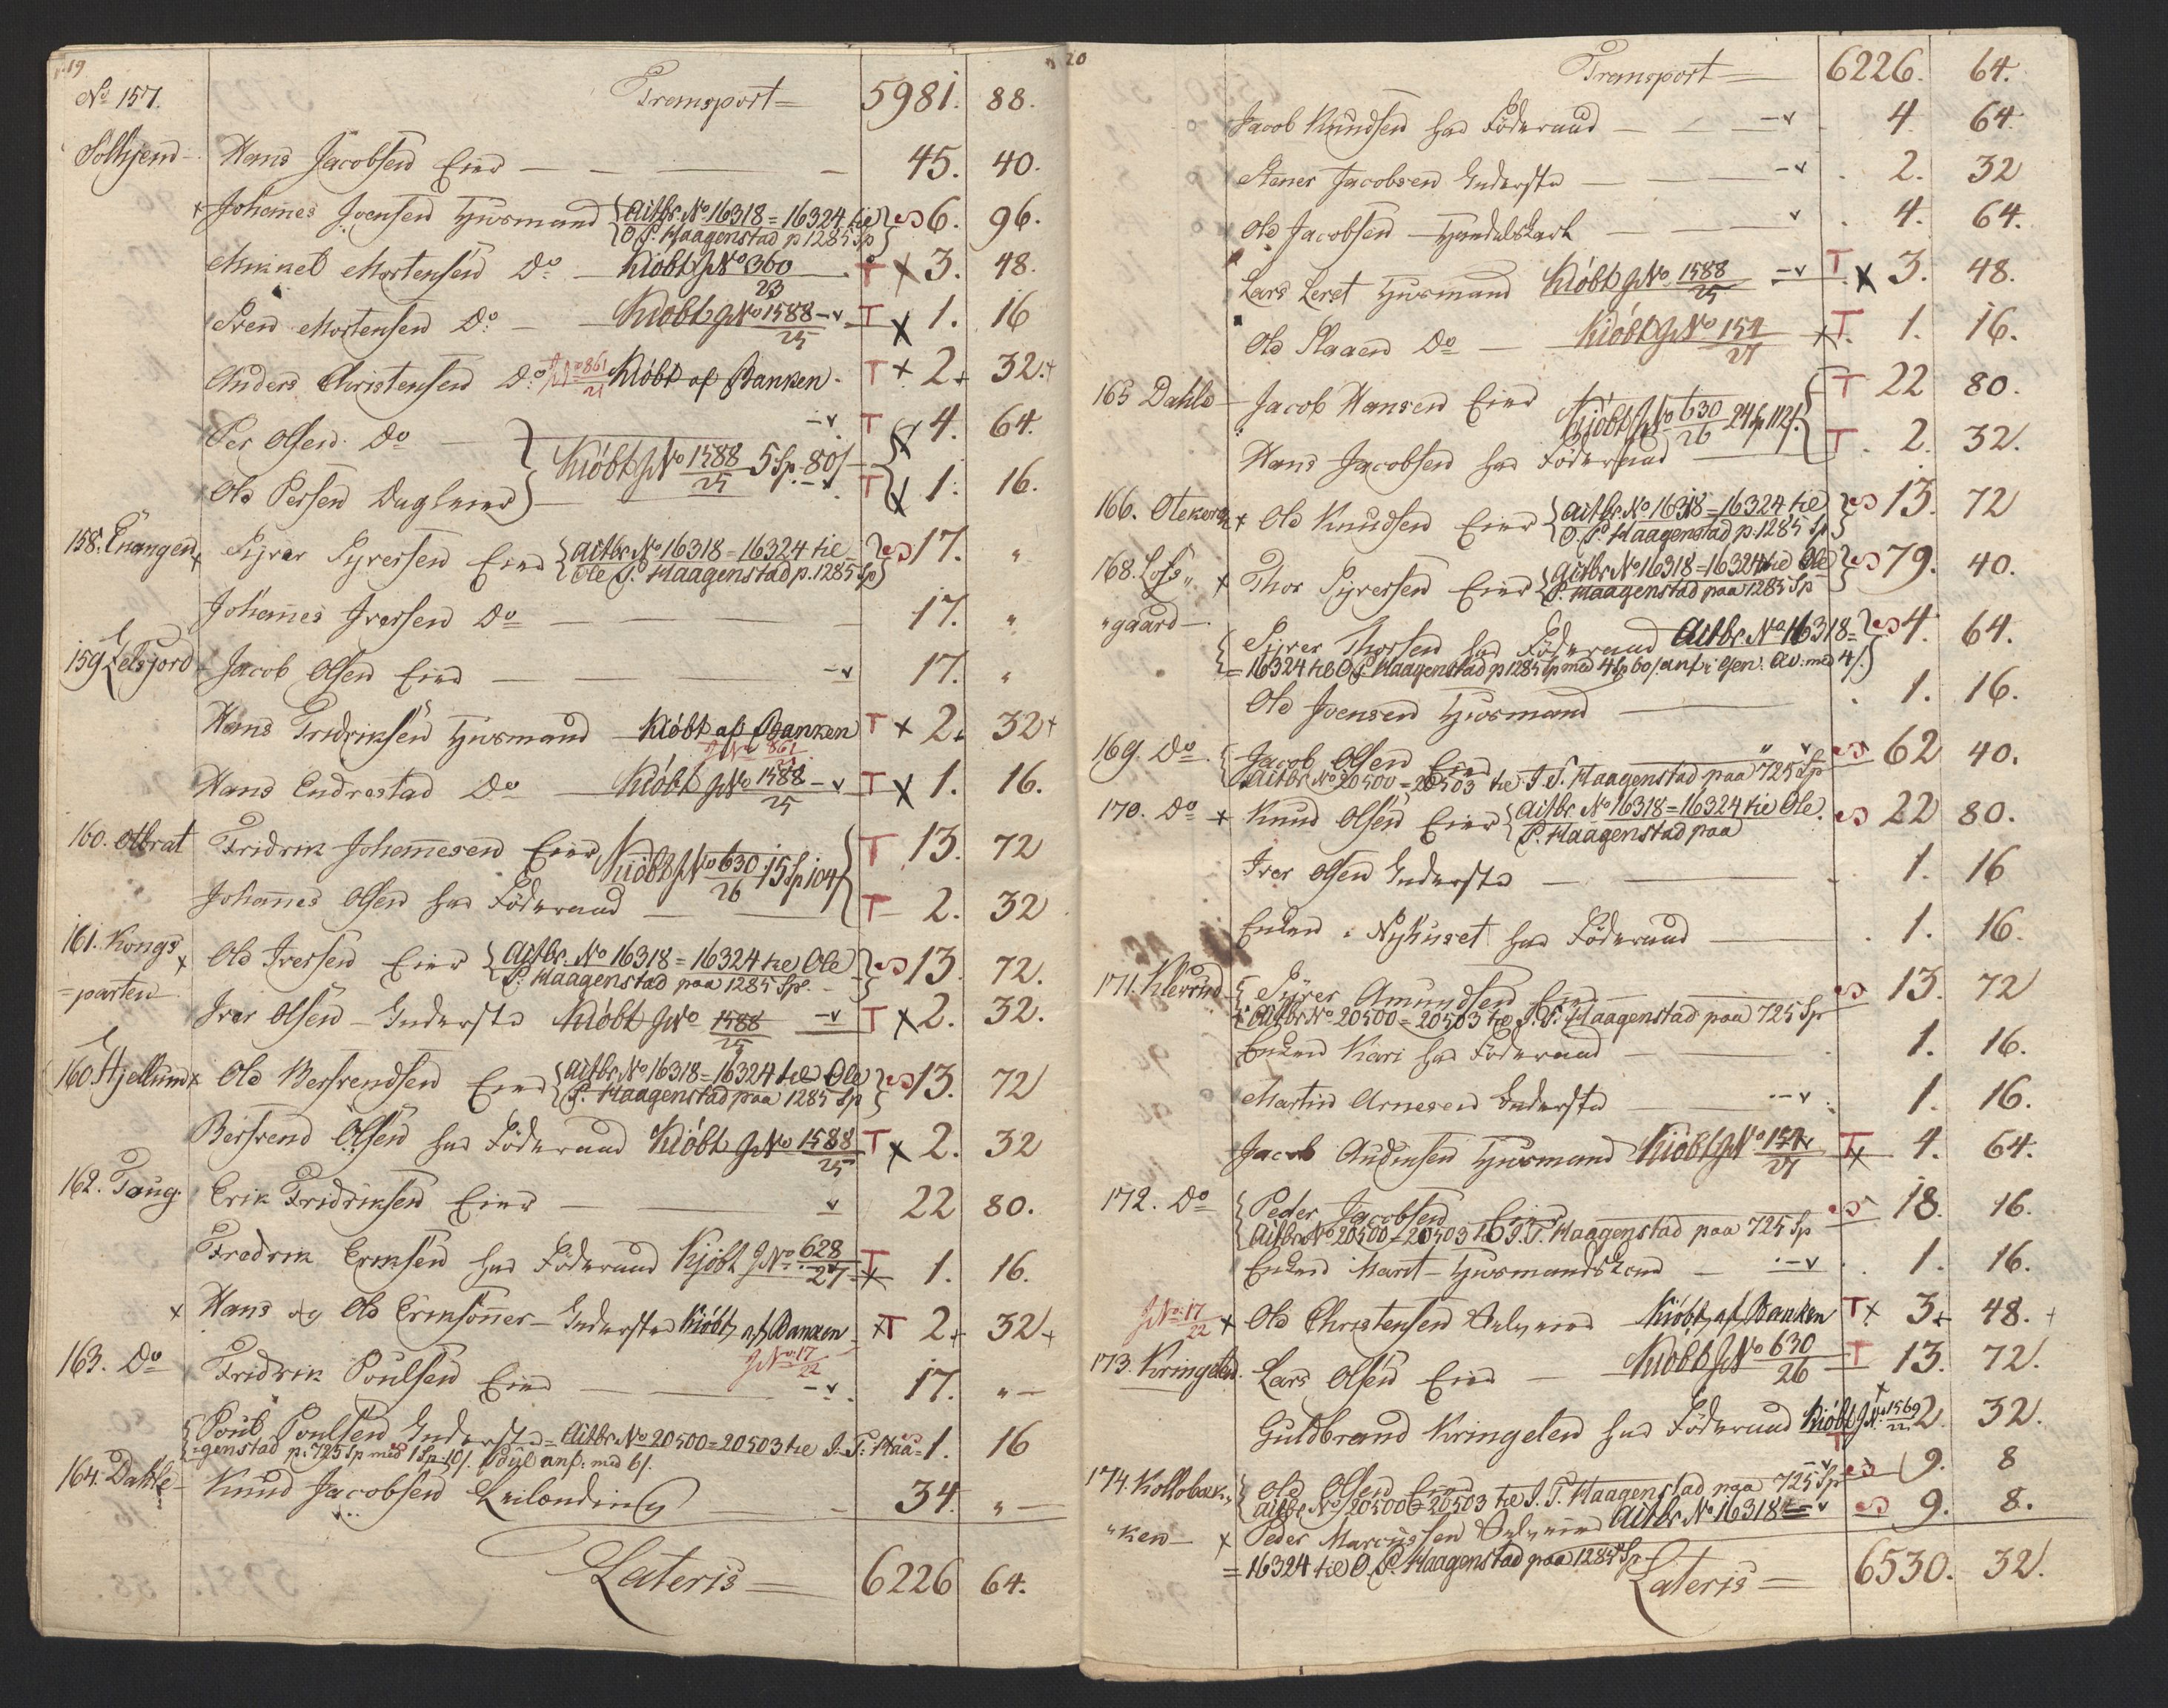 p. 19
No 157. Transport = 5981. 88.
Solhjem - Hans Jacobsen Eier — 45. 40.
x Johannes Joensen Huusmand {Aitbr. No 16318 = 16324 til 6. 96.
O. P. Haagenstad p 1285 Sp}
Mikkel Mortensen Do. Kiöbt J No 360/23 T x 3. 48.
Sven Mortensen Do. — Kiöbt J No 1588/25 -v T x 1. 16
Anders Christensen Do. J No 861/21 Kiöbt af Banken. T x 2+ 32.+
Per Olsen Do — -v T x 4. 64.
Kiöbt J No 1588/25 5 Sp. 80/
Ole Persen Dagleier — T x 1. 16.
158. Enangen x Syver Syversen Eier {Aitbr No 16318 = 16324 til 17. "
Ole P. Haagenstad p. 1285 Sp}
Johannes Iversen Do — 17. "
159 Lelsjord - Jacob Olsen Eier — -v 17. "
Hans Fridriksen Huusmand Kiöbt af Banken T x 2+ 32+
J No 861/21
Hans Endrestad Do — Kiöbt J No 1588/25 -v T x 1. 16.
160. Olbrat Fridrik Johannesen Eier T 13. 72
Kiöbt J No 630/26 15 Sp 104/
Johannes Olsen har Föderaad — T 2. 32
161. Kongs x Ole Iversen Eier {Aitbr. No 16318 = 16324 til Ole 13. 72.
= parten P. Haagenstad paa 1285 Sp. }
Iver Olsen - Inderste Kiöbt J No 1588/25 -v T x 2. 32.
160 Hjellum x Ole Berfvendsen Eier {Aitbr No 16318 = 16324 til Ole 13. 72
P. Haagenstad paa 1285 Sp}
Berfvend Olsen har Föderaad Kiöbt J No 1588/25 T x 2. 32
162. Taug. Erik Fridriksen Eier — v 22 80.
Fredrik Eriksen har Föderaad Kjöbt J No. 628/27 T x 1. 16.
x Hans og Ole Eriksönner - Inderster Kiöbt af Banken x T 2+ 32+
J No. 17/22
163. Do Fridrik Poulsen Eier — -v. 17. " -
{Poul Poulsen Inderste = Aitbr No 20500 = 20503 til J. P. Haa= 1. 16
= genstad p. 725 Sp med 1 Sp 10/. anf: med 6/.
164. Dahle - Knud Jacobsen Leilending — 34. " -
Lateris = 6226 64.
p. 20
Transport = 6226. 64.
Jacob Knudsen har Föderaad — -v 4. 64.
Stener Jacobsen Inderste — -v 2. 32
Ole Jacobsen - Handelskarl — v 4. 64.
Lars Leret Huusmand Kiöbt J No 1588/25 -v T x 3. 48.
Ole Plaaen Do — Kiöbt J No 154/27 x T. 1. 16.
165 Dahle - Jacob Hansen Eier T 22 80.
Kjöbt J No 630/26 24 Sp 112/.
Hans Jacobsen har Föderaad — T. 2. 32.
166. Olekorn x Ole Knudsen Eier {Aitbr. No 16318 = 16324 til 13. 72
O. P. Haagenstad p. 1285 Sp}
168. Lofs " x Thor Syversen Eier {Aitbr No 16318 = 16324 til Ole 79. 40.
P. Haagenstad paa 1285 Sp}
" gaard - {Syver Thorsen har Föderaad Aitbr No 16318 = 4. 64.
= 16324 til O. P. Haagenstad p 1285 Sp med 4 Sp 60/. anf: i Gen: Av: med 4/.}
Ole Joensen Huusmand — 1. 16.
169. Do. {Jacob Olsen Eier — " v 62 40.
Aitbr No 20500 = 20503 til J. P. Haagenstad paa 725 Sp
170. Do x Knud Olsen Eier {Aitbr. No 16318 = 16324 til Ole. 22 80.
P. Haagenstad paa
Iver Olsen Inderste — 1. 16
Enken i Nyhuset har Föderaad — 1. 16.
171. Kleverud {Syver Amundsen Eier — 13. 72
Aitbr No 20500 = 20503 til J. P. Haagenstad paa 725 Sp
Enken Kari har Föderaad — 1. 16.
Martin Arnesen Inderste — -v 1. 16.
Jacob Audensen Huusmand Kiöbt J No 154/27 T x 4. 64.
172. Do {Peder Jacobsen Eier — 18. 16.
Aitbr No 20500 = 20503 til J. P. Haagenstad paa 725 Sp
Enken Marit - Huusmandskone — -v 1. 16.
J No 17/22 x Ole Christensen Selveier Kiöbt af Banken T x 3+ 48.+
173. Kringelen. Lars Olsen Eier — Kiöbt J No 630/26 T 13. 72.
Guldbrand Kringelen har Föderaad Kiöbt J No 1569/22 T 2. 32.
174. Kollobæk= {Ole Olsen Eier — -v 9. 8
Aitbr No 20500 = 20503 til J. P. Haagenstad paa 725 Sp
" ken - x Peder Marcussen Selveier Aitbr No 16318 = v 9. 8.
= 16324 til O. P. Haagenstad paa 1285 Sp
Lateris = 6530. 32.